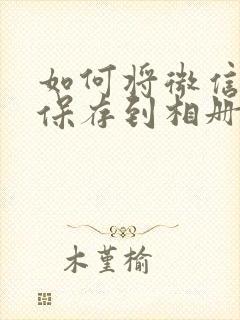 如何将微信
保存到相册
木堇榆